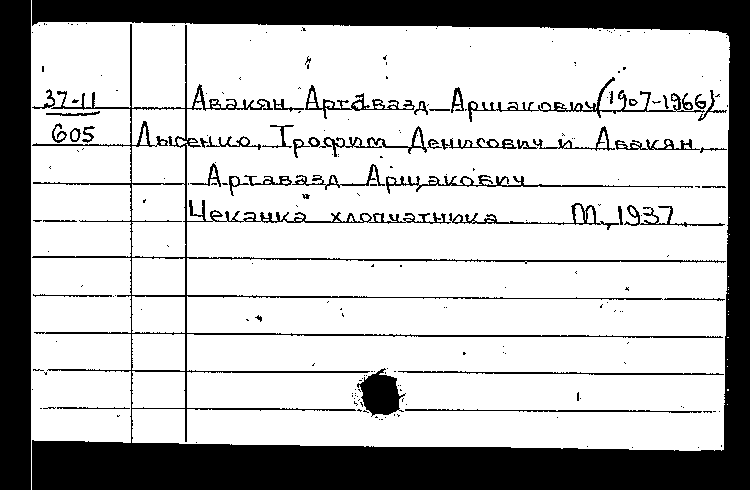 37-11 Авакян, Артавазд Аршакович (1907-1966)
605 Лысенко, Трофим Денисович и Авакян,
Артавазд Аршакович
Чеканка хлопчатника М., 1937.